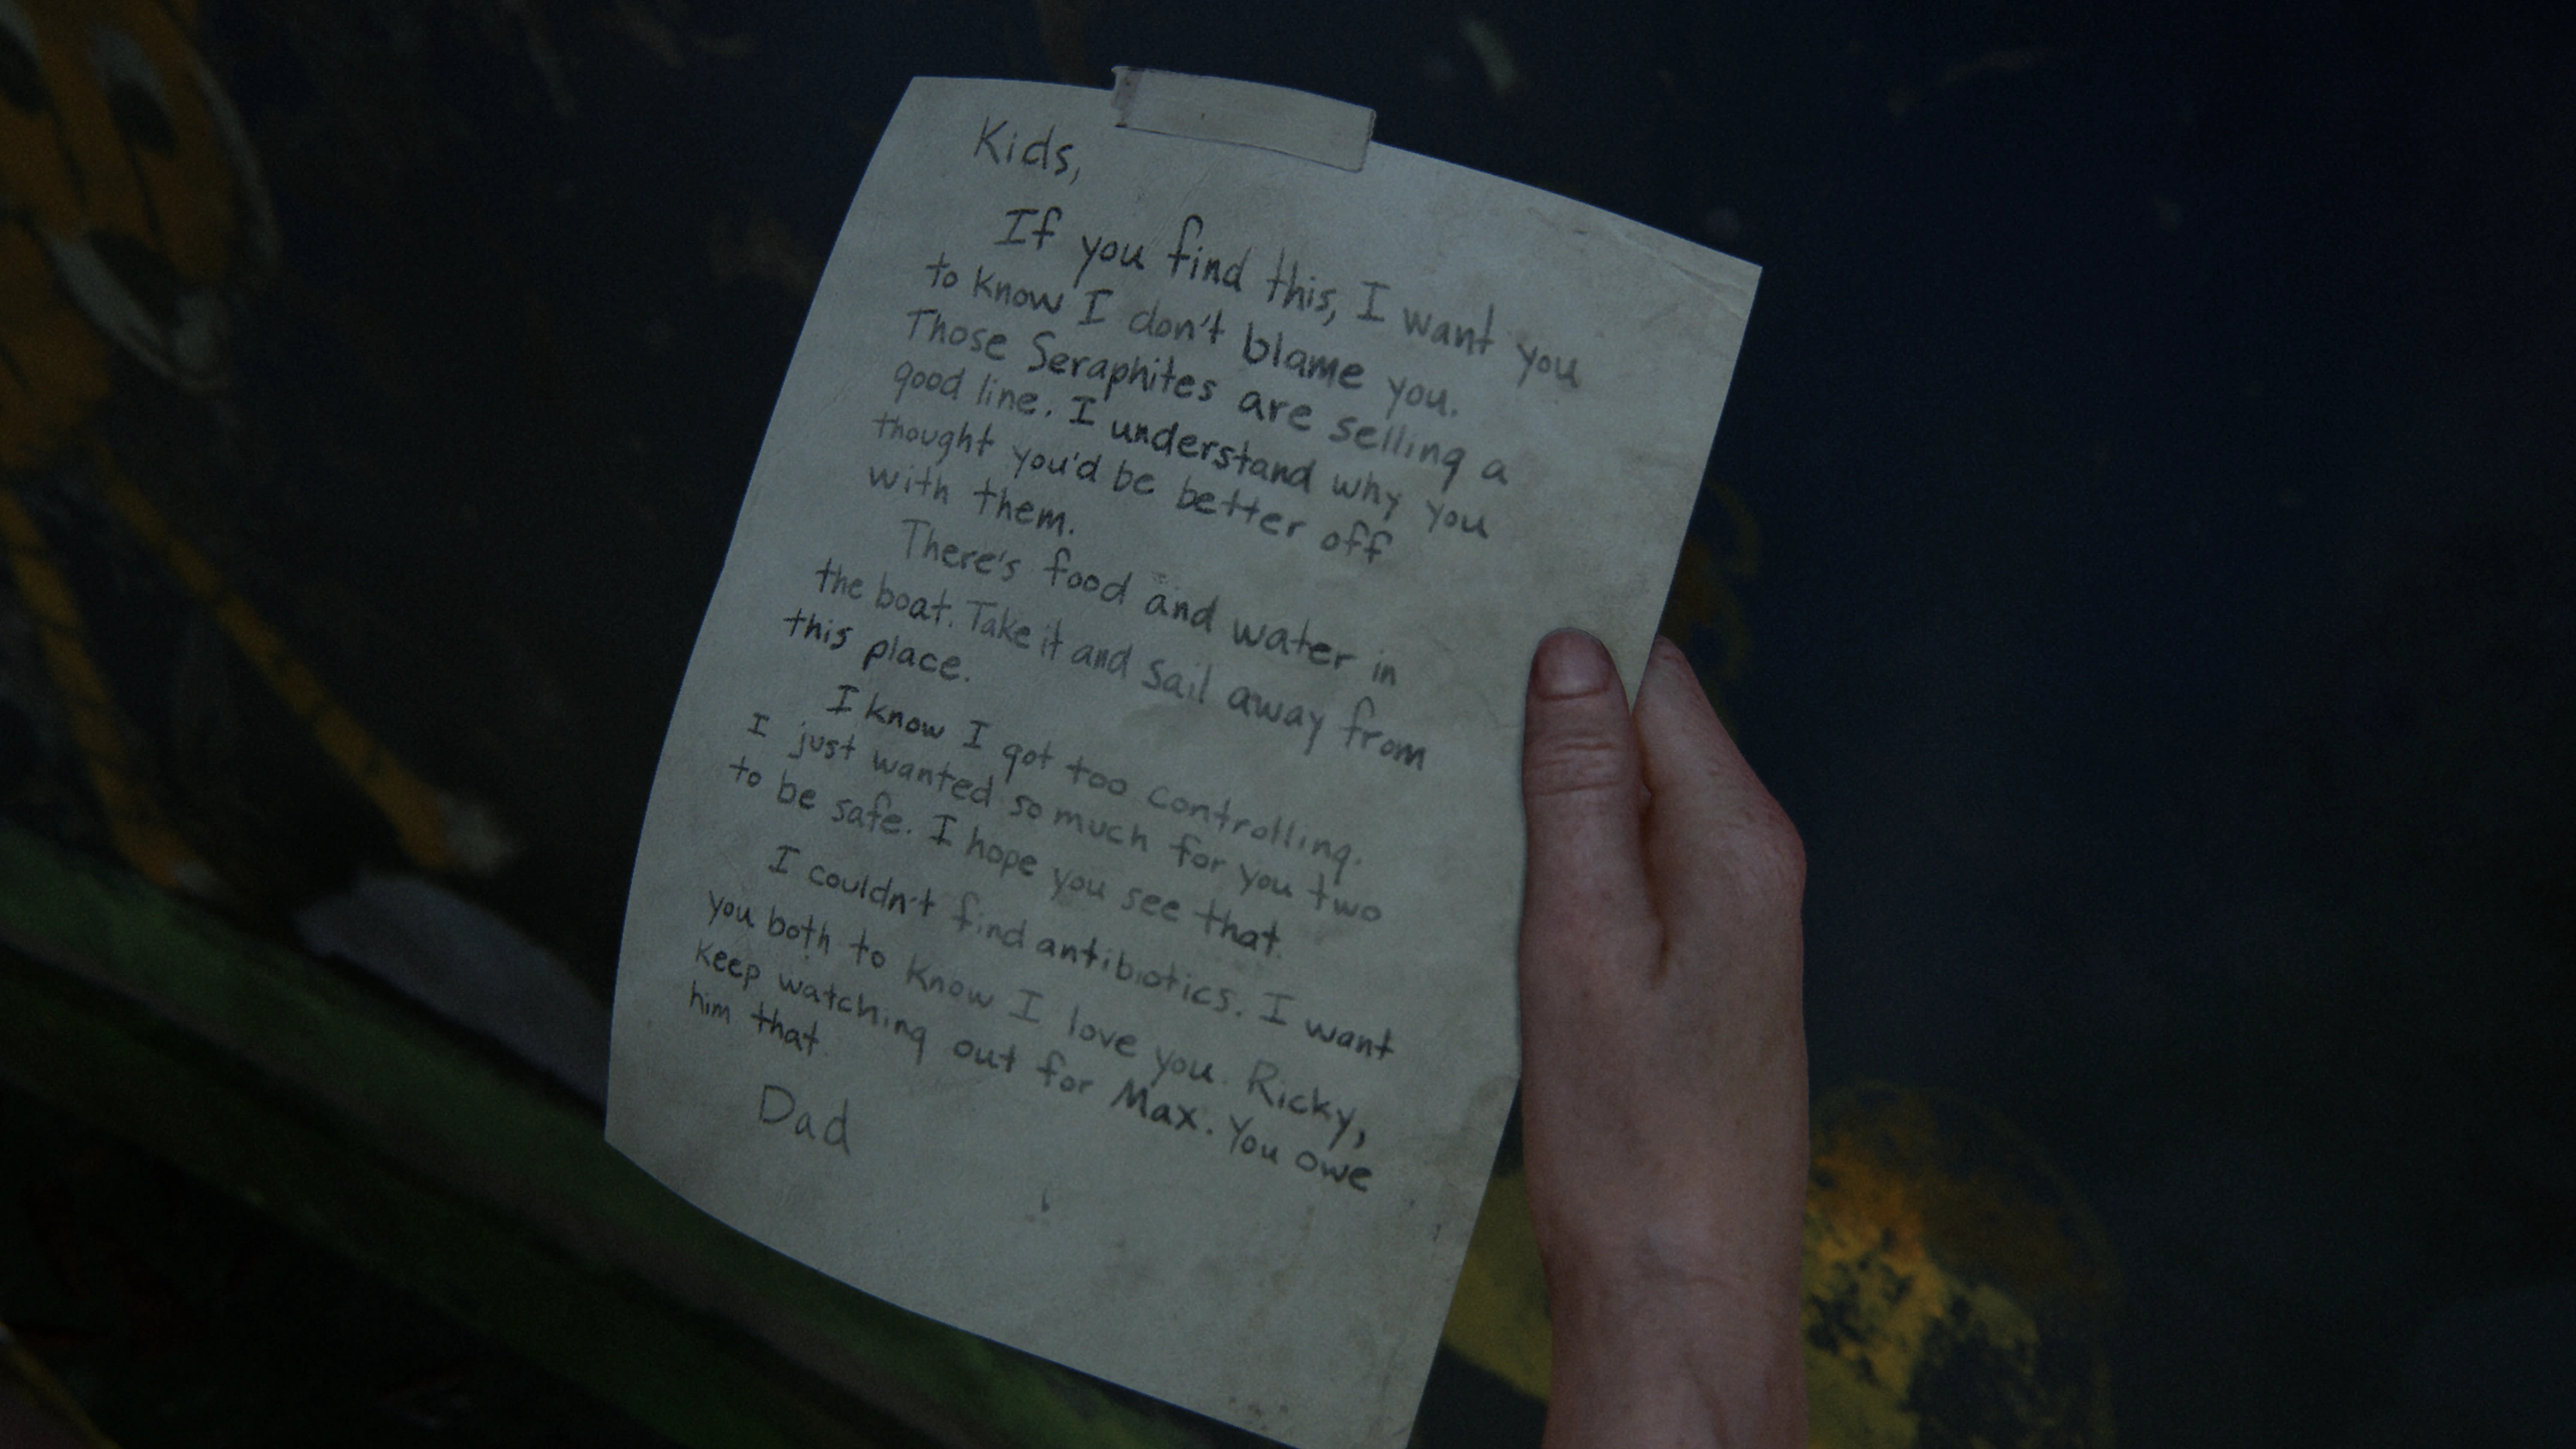 Kids,
If you find this, I want you
to know I don't blame you.
Those Seraphites are selling a
good line. I understand why you
thought you'd be better off
with them.
There's food and water in
the boat. Take it and sail away from
this place.
I know I got too controlling.
I just wanted so much for you two
to be safe. I hope you see that.
I couldn't find antibiotics. I want
you both to know I love you. Ricky,
keep watching out for Max. You owe
him that.
Dad